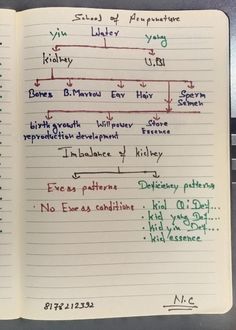 School of Acupuncture
yin Water yang
kidney U.Bl
Bones B.Marrow Ear Hair Sperm
Semen
birth growth Willpower Store
reproduction development Essence
Imbalance of kidney
Excess patterns Deficiency patterns
• No Excess conditions • kid Qi Def....
• kid yang Def....
• kid yin Def....
• kid essence
8178212332 N.C